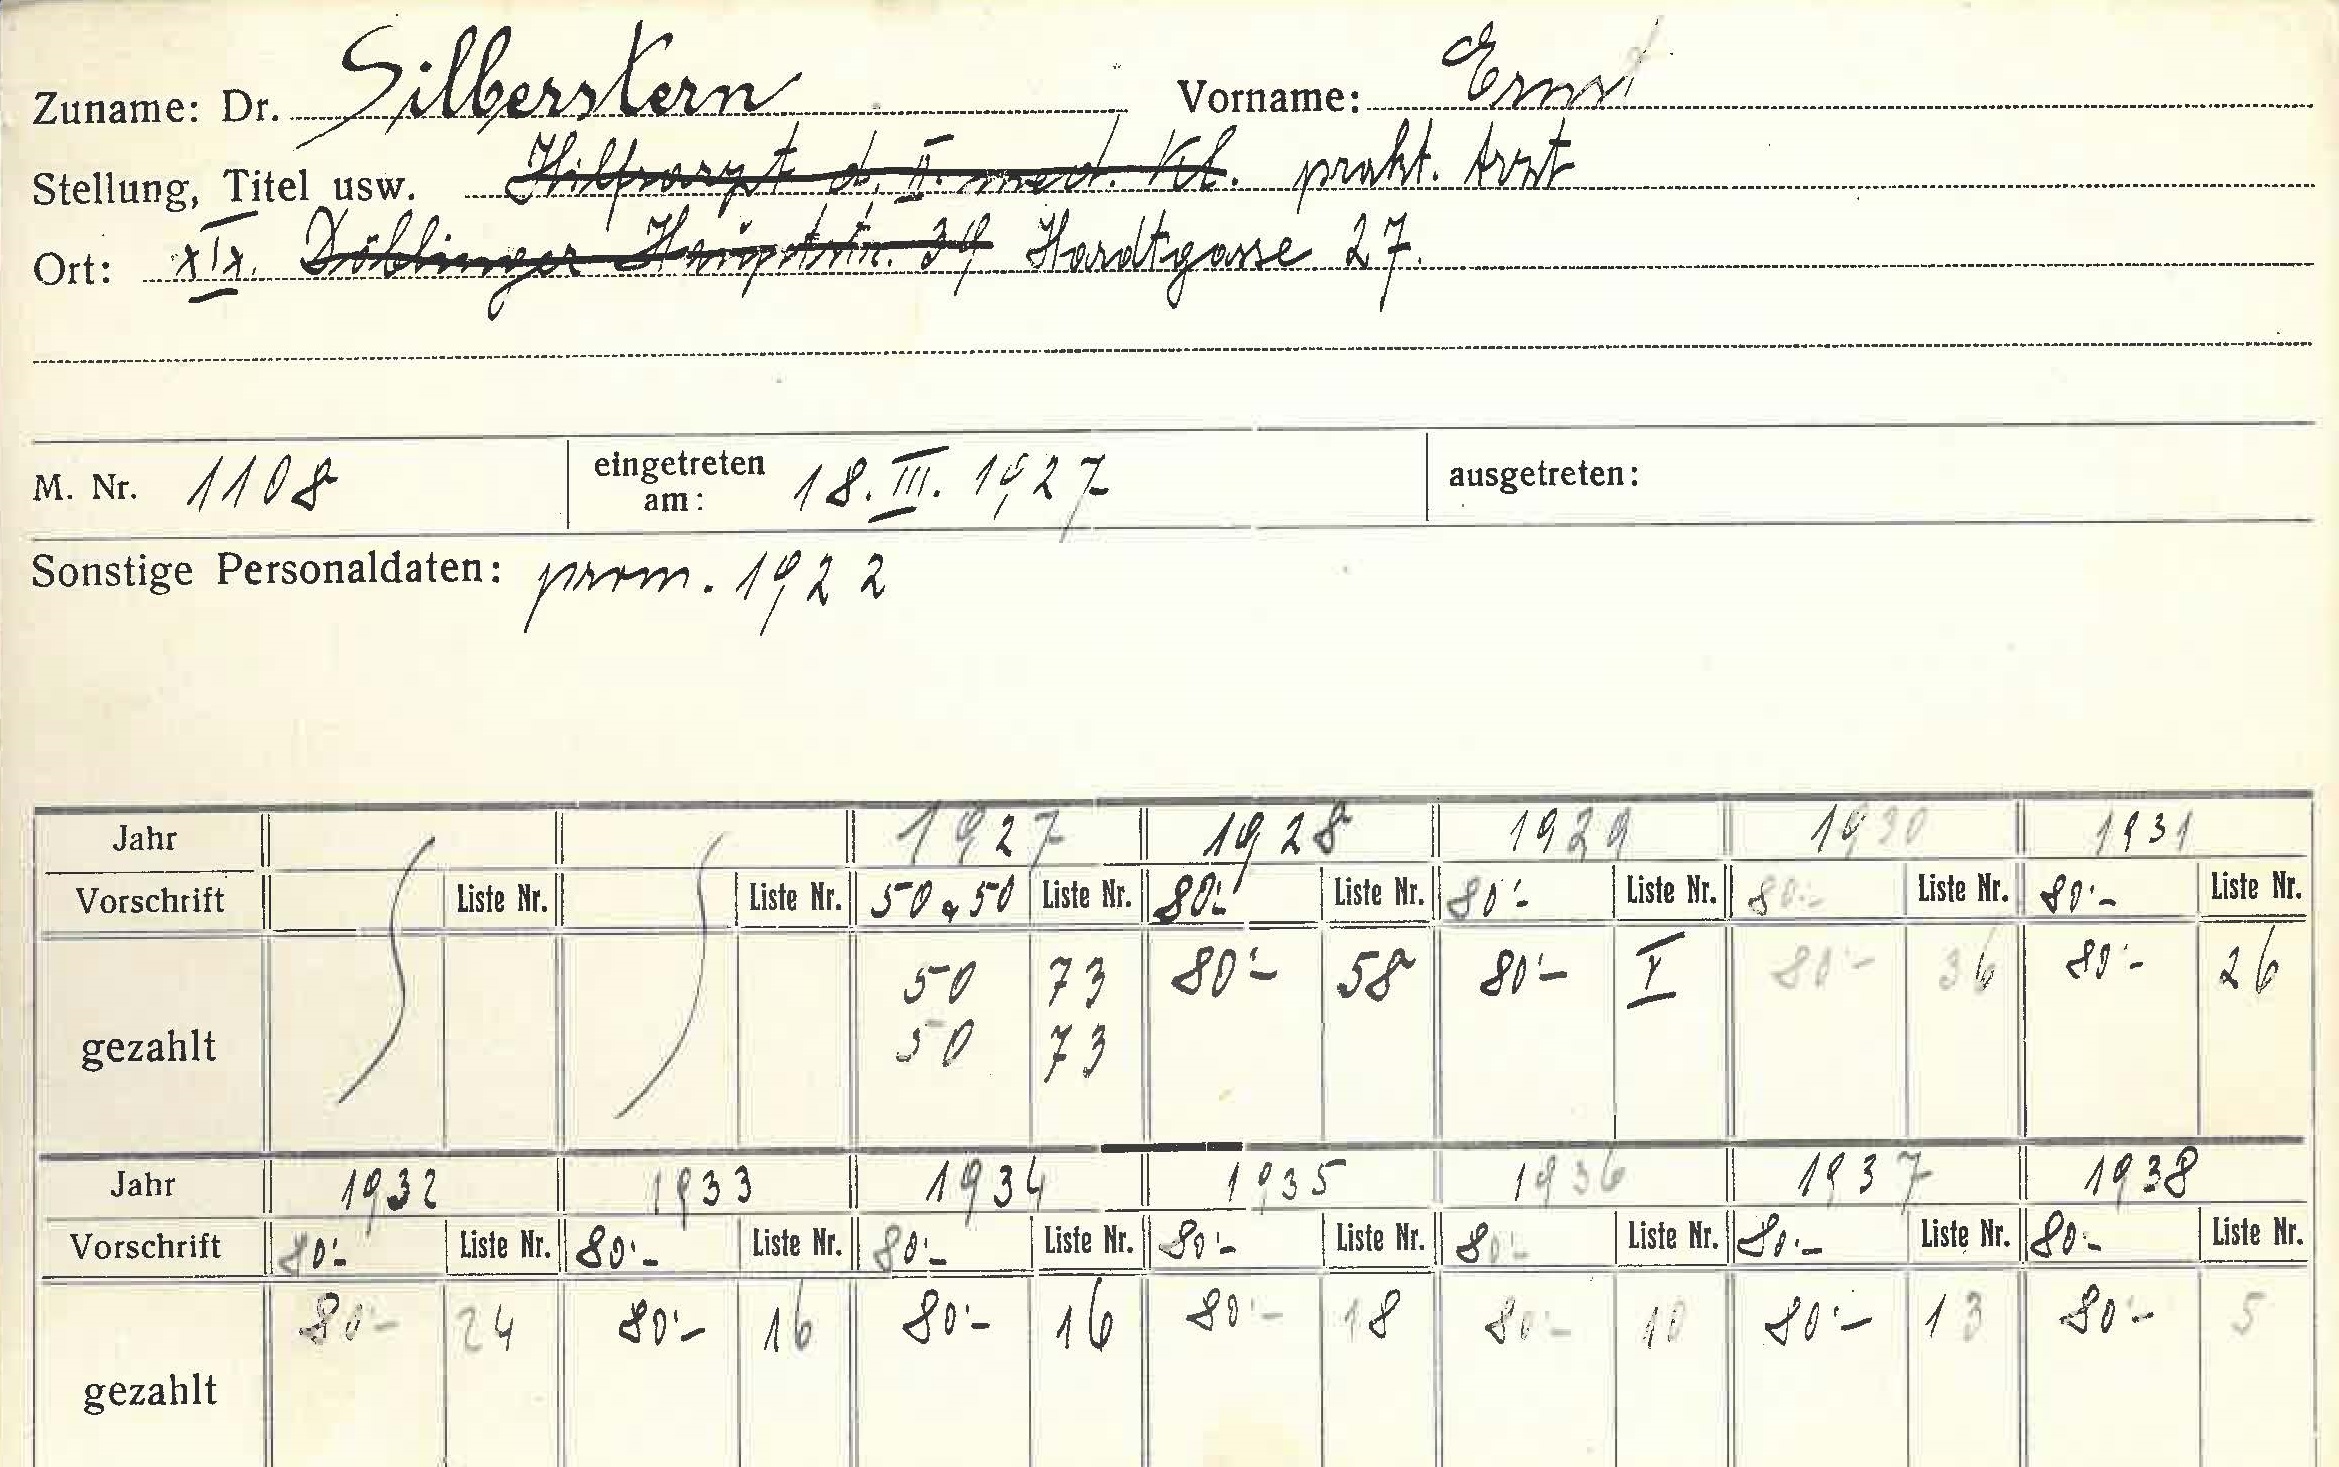 Zuname: Dr. Silberstern Vorname: Ernst
Stellung, Titel usw. Hilfsarzt d. II. med. Kl. prakt. Arzt
Ort: XIX. Döblinger Hauptstr. 39 Hardtgasse 27.
M. Nr. 1108 eingetreten am: 18. III. 1927 ausgetreten:
Sonstige Personaldaten: prom. 1922
Jahr 1927 1928 1929 1930 1931
Vorschrift Liste Nr. Liste Nr. 50 + 50 Liste Nr. 80'- Liste Nr. 80'- Liste Nr. 80'- Liste Nr. 80'- Liste Nr.
50 73 80'- 58 80'- I 80'- 36 80'- 26
gezahlt 50 73
Jahr 1932 1933 1934 1935 1936 1937 1938
Vorschrift 80'- Liste Nr. 80'- Liste Nr. 80'- Liste Nr. 80'- Liste Nr. 80'- Liste Nr. 80'- Liste Nr. 80- Liste Nr.
80'- 24 80'- 16 80'- 16 80'- 18 80'- 10 80'- 13 80'- 5
gezahlt